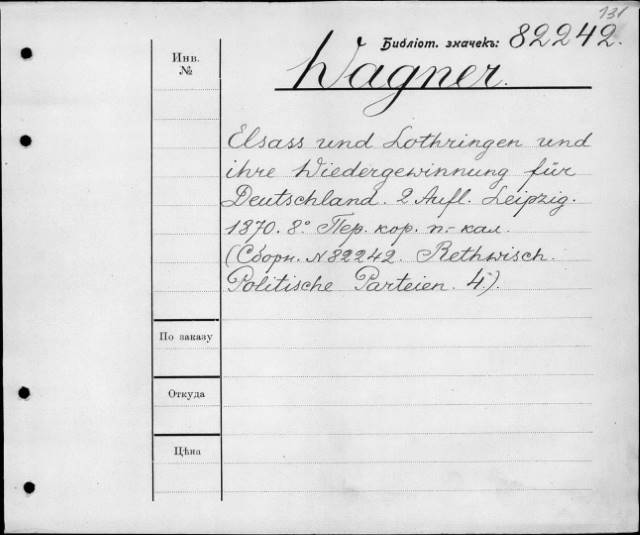 131
Библіот. значекъ: 82242.
Инв.
№
Wagner.
Elsass und Lothringen und
ihre Wiedergewinnung für
Deutschland. 2 Aufl. Leipzig.
1870. 8° Пер. кор. п.-кал.
(Сборн. № 82242. Rethwisch.
Politische Parteien. 4).
По заказу
Откуда
Цѣна